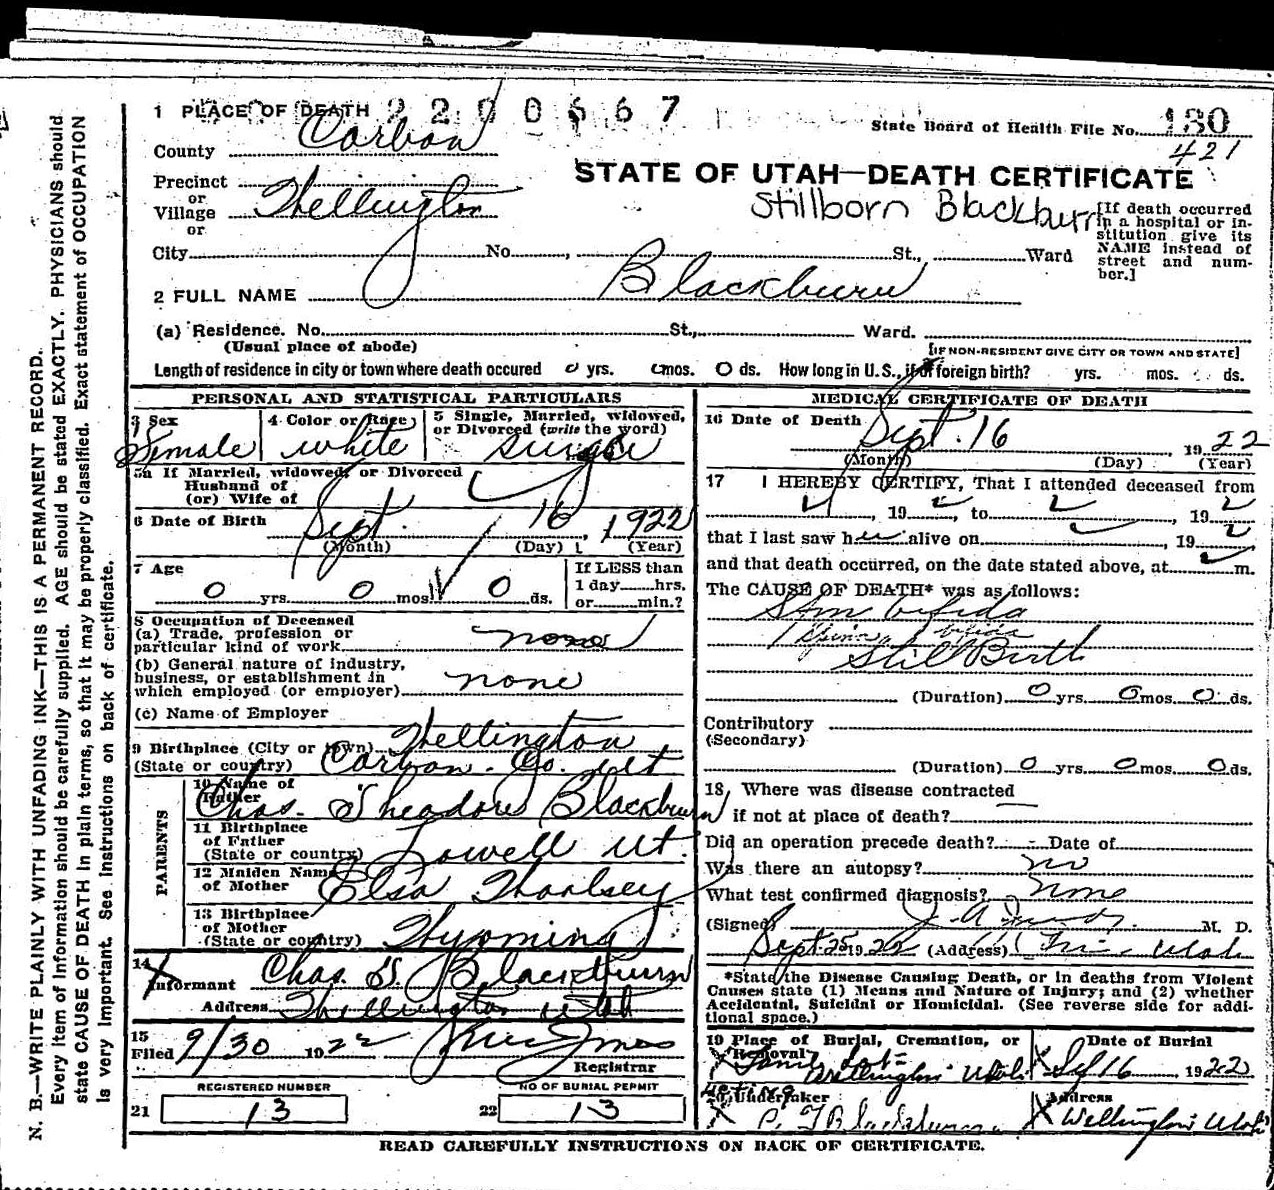 1 PLACE OF DEATH 2200567
State Board of Health File No. 130
421
County Carbon
STATE OF UTAH—DEATH CERTIFICATE
Precinct
or
Village Wellington
or
Stillborn Blackburn
[If death occurred in a hospital or institution give its NAME instead of street and number.]
City No. , St., Ward
2 FULL NAME Blackburn
(a) Residence. No. St., Ward.
(Usual place of abode)
[IF NON-RESIDENT GIVE CITY OR TOWN AND STATE]
Length of residence in city or town where death occured 0 yrs. 0 mos. 0 ds. How long in U.S., if of foreign birth? yrs. mos. ds.
PERSONAL AND STATISTICAL PARTICULARS
3 Sex Female
4 Color or Race white
5 Single, Married, widowed, or Divorced (write the word) single
5a If Married, widowed, or Divorced
Husband of
(or) Wife of
6 Date of Birth Sept. 16, 1922
(Month) (Day) (Year)
7 Age 0 yrs. 0 mos. 0 ds.
If LESS than
1 day hrs.
or min.?
8 Occupation of Deceased
(a) Trade, profession or
particular kind of work none
(b) General nature of industry,
business, or establishment in
which employed (or employer) none
(c) Name of Employer
9 Birthplace (City or town) Wellington
(State or country) Carbon Co. Ut
PARENTS
10 Name of
Father Chas. Theodore Blackburn
11 Birthplace
of Father
(State or country) Lowell Ut.
12 Maiden Name
of Mother Elsa
13 Birthplace
of Mother
(State or country) Wyoming
14
Informant Chas. T. Blackburn
Address Wellington Utah
15
Filed 9/30 1922
Registrar
REGISTERED NUMBER
21 13
NO OF BURIAL PERMIT
22 13
MEDICAL CERTIFICATE OF DEATH
16 Date of Death Sept. 16, 1922
(Month) (Day) (Year)
17 I HEREBY CERTIFY, That I attended deceased from
, 19 , to , 19
that I last saw her alive on , 19
and that death occurred, on the date stated above, at m.
The CAUSE OF DEATH* was as follows:
bifida
Spina bifida
Still Birth
(Duration) 0 yrs. 0 mos. 0 ds.
Contributory
(Secondary)
(Duration) 0 yrs. 0 mos. 0 ds.
18, Where was disease contracted
if not at place of death?
Did an operation precede death? - Date of
Was there an autopsy? no
What test confirmed diagnosis? none
(Signed) M. D.
Sept 25 1922 (Address) Utah
*State the Disease Causing Death, or in deaths from Violent
Causes state (1) Means and Nature of Injury; and (2) whether
Accidental, Suicidal or Homicidal. (See reverse side for additional space.)
19 Place of Burial, Cremation, or
Removal
Wellington Utah
Date of Burial
Sept 16 1922
20 Undertaker
Acting
Blackburn
Address
Wellington Utah
READ CAREFULLY INSTRUCTIONS ON BACK OF CERTIFICATE.
N. B.—WRITE PLAINLY WITH UNFADING INK—THIS IS A PERMANENT RECORD.
Every item of information should be carefully supplied. AGE should be stated EXACTLY. PHYSICIANS should
state CAUSE OF DEATH in plain terms, so that it may be properly classified. Exact statement of OCCUPATION
is very important. See instructions on back of certificate.